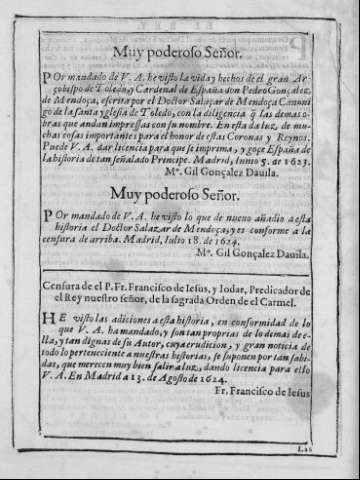 Muy poderoso Señor.
POr mandado de V. A. he visto la vida y hechos de el gran Ar-
çobispo de Toledo, y Cardenal de España don Pedro Gonçalez,
de Mendoça, escrita por el Doctor Salaçar de Mendoça Canuni
go de la santa yglesia de Toledo, con la diligencia q̃ las demas o-
bras que andan impressas con su nombre. En esta da luz, de mu-
chas cosas importantes para el honor de estas Coronas y Reynos.
Puede V. A. dar licencia para que se imprema, y goçe España de
la historia de tan señalado Principe. Madrid, Iunio 5. de 1623.
Mº. Gil Gonçalez Dauila.
Muy poderoso Señor.
POr mandado de V. A. he visto lo que de nueuo añadio a esta
historia el Doctor Salazar de Mendoça, y es conforme a la
censura de arriba. Madrid, Iulio 18. de 1624.
Mº. Gil Gonçalez Dauila.
Censura de el P. Fr. Francisco de Iesus, y Iodar, Predicador de
el Rey nuestro señor, de la sagrada Orden de el Carmel.
HE visto las adiciones a esta historia, en conformidad de lo
que V. A. ha mandado, y son tan proprias de lo demas de e-
lla, y tan dignas de su Autor, cuya erudizion, y gran noticia de
todo lo perteneciente a nuestras historias, se suponen por tan sabi-
das, que merecen muy bien salir a luz, dando licencia para ello
V. A. En Madrid a 13. de Agosto de 1624.
Fr. Francisco de Iesus
Las